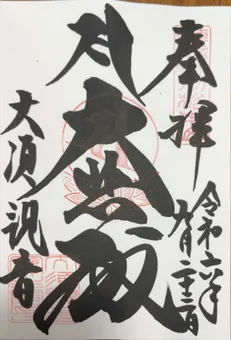 奉拝
令和六年
九月二十三日
大悲殿
大須観音